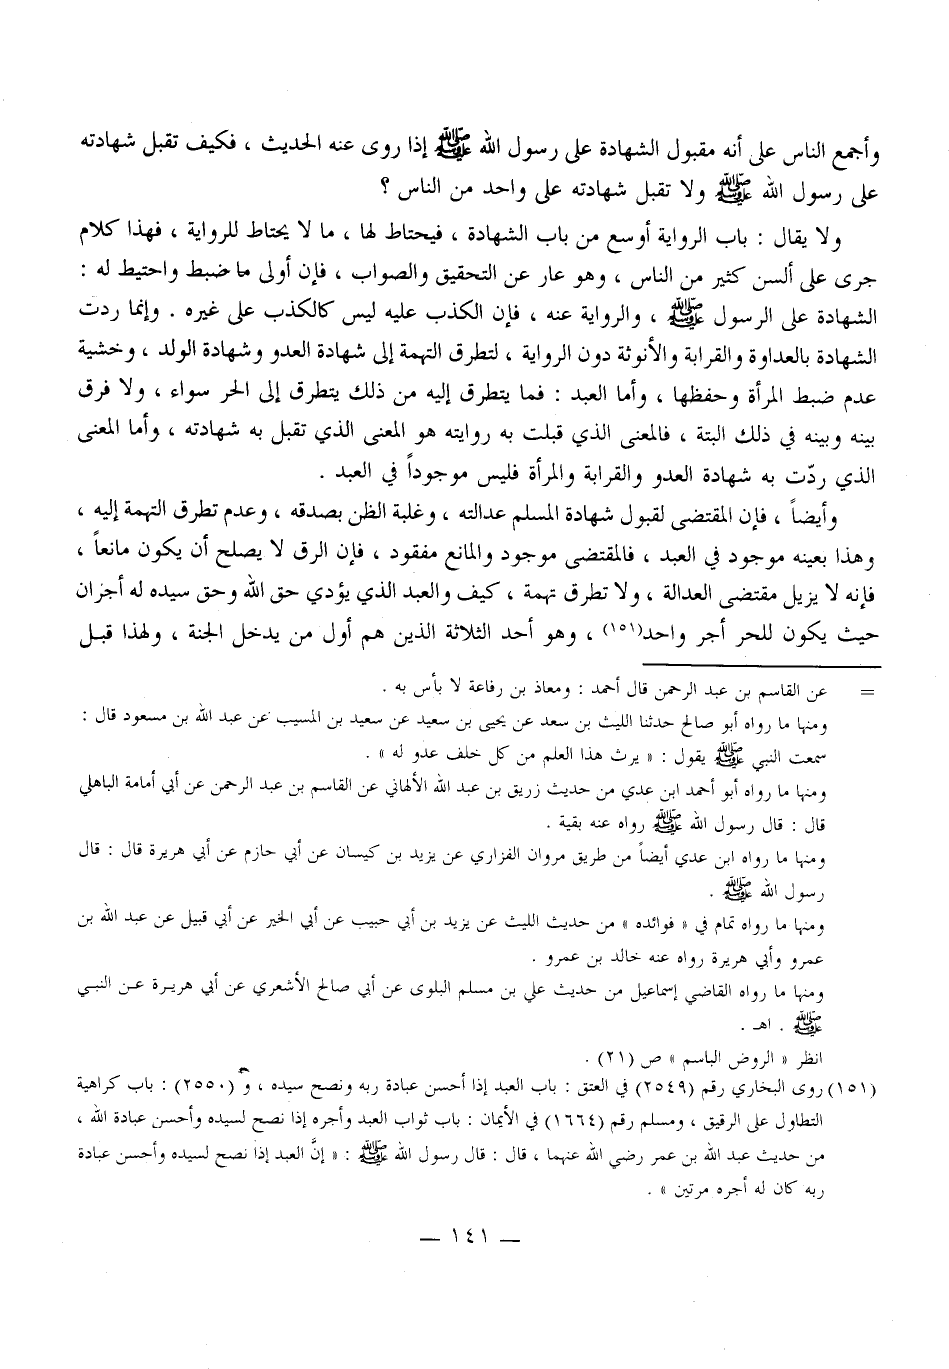 وأجمع الناس على أنه مقبول الشهادة على رسول الله ﷺ إذا روى عنه الحديث ، فكيف تقبل شهادته
على رسول الله ﷺ ولا تقبل شهادته على واحد من الناس ؟
ولا يقال : باب الرواية أوسع من باب الشهادة ، فيحتاط لها ، ما لا يحتاط للرواية ، فهذا كلام
جرى على ألسن كثير من الناس ، وهو عار عن التحقيق والصواب ، فإن أولى ما ضبط واحتيط له :
الشهادة على الرسول ﷺ ، والرواية عنه ، فإن الكذب عليه ليس كالكذب على غيره . وإنما ردت
الشهادة بالعداوة والقرابة والأنوثة دون الرواية ، لتطرق التهمة إلى شهادة العدو وشهادة الولد ، وخشية
عدم ضبط المرأة وحفظها ، وأما العبد : فما يتطرق إليه من ذلك يتطرق إلى الحر سواء ، ولا فرق
بينه وبينه في ذلك البتة ، فالمعنى الذي قبلت به روايته هو المعنى الذي تقبل به شهادته ، وأما المعنى
الذي ردّت به شهادة العدو والقرابة والمرأة فليس موجوداً في العبد .
وأيضاً ، فإن المقتضى لقبول شهادة المسلم عدالته ، وغلبة الظن بصدقه ، وعدم تطرق التهمة إليه ،
وهذا بعينه موجود في العبد ، فالمقتضى موجود والمانع مفقود ، فإن الرق لا يصلح أن يكون مانعاً ،
فإنه لا يزيل مقتضى العدالة ، ولا تطرق تهمة ، كيف والعبد الذي يؤدي حق الله وحق سيده له أجران
حيث يكون للحر أجر واحد(١٥١) ، وهو أحد الثلاثة الذين هم أول من يدخل الجنة ، ولهذا قبل
= عن القاسم بن عبد الرحمن قال أحمد : ومعاذ بن رفاعة لا بأس به .
ومنها ما رواه أبو صالح حدثنا الليث بن سعد عن يحيى بن سعيد عن سعيد بن المسيب عن عبد الله بن مسعود قال :
سمعت النبي ﷺ يقول : « يرث هذا العلم من كل خلف عدو له » .
ومنها ما رواه أبو أحمد ابن عدي من حديث زريق بن عبد الله الألهاني عن القاسم بن عبد الرحمن عن أبي أمامة الباهلي
قال : قال رسول الله ﷺ رواه عنه بقية .
ومنها ما رواه ابن عدي أيضاً من طريق مروان الفزاري عن يزيد بن كيسان عن أبي حازم عن أبي هريرة قال : قال
رسول الله ﷺ .
ومنها ما رواه تمام في « فوائده » من حديث الليث عن يزيد بن أبي حبيب عن أبي الخير عن أبي قبيل عن عبد الله بن
عمرو وأبي هريرة رواه عنه خالد بن عمرو .
ومنها ما رواه القاضي إسماعيل من حديث علي بن مسلم البلوى عن أبي صالح الأشعري عن أبي هريرة عن النبي
ﷺ . اهـ .
انظر « الروض الباسم » ص (٢١) .
(١٥١) روى البخاري رقم (٢٥٤٩) في العتق : باب العبد إذا أحسن عبادة ربه ونصح سيده ، و (٢٥٥٠) : باب كراهية
التطاول على الرقيق ، ومسلم رقم (١٦٦٤) في الأيمان : باب ثواب العبد وأجره إذا نصح لسيده وأحسن عبادة الله ،
من حديث عبد الله بن عمر رضي الله عنهما ، قال : قال رسول الله ﷺ : « إنَّ العبد إذا نصح لسيده وأحسن عبادة
ربه كان له أجره مرتين » .
— ١٤١ —